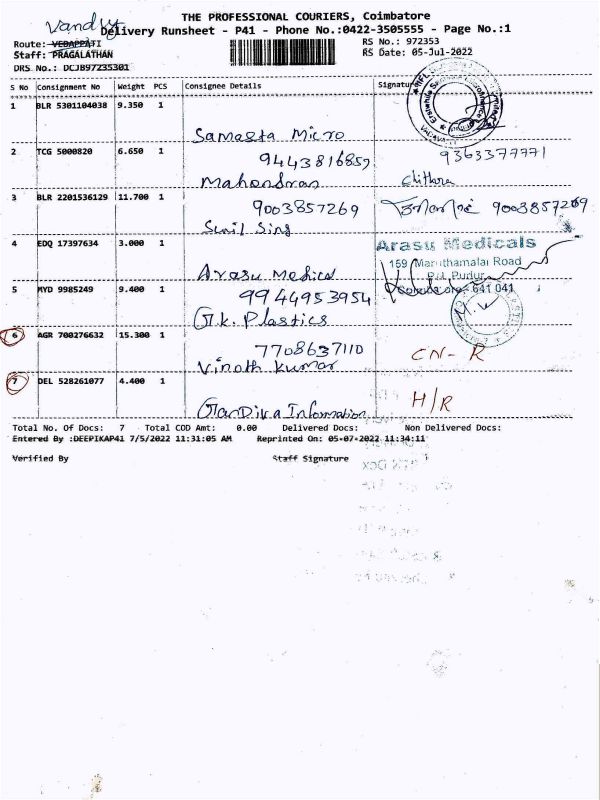 THE PROFESSIONAL COURIERS, Coimbatore
Delivery Runsheet - P41 - Phone No.:0422-3505555 - Page No.:1
Route: VEDAPPATI
RS No.: 972353
Staff: PRAGALATHAN
RS Date: 05-Jul-2022
DRS No.: DCJB97235301
S No Consignment No Weight PCS Consignee Details Signatu
1 BLR 5301104038 9.350 1
Samasta Micro
2 TCG 5000820 6.650 1
9443816857 9363377771
Mahendran Chithra
3 BLR 2201536129 11.700 1
9003857269 9003857269
Sunil Sing
4 EDQ 17397634 3.000 1
Arasu Medicals
159 Maruthamalai Road
P.N. Pudur
Arasu Medical
Coimbatore- 641 041
5 MYD 9985249 9.400 1
9944953954
G.k. Plastics
6 AGR 700276632 15.300 1
7708637110 CN- R
Vinoth Kumar
7 DEL 528261077 4.400 1
H/R
GanDiva Information
Total No. Of Docs: 7 Total COD Amt: 0.00 Delivered Docs: Non Delivered Docs:
Entered By :DEEPIKAP41 7/5/2022 11:31:05 AM Reprinted On: 05-07-2022 11:34:11
Verified By Staff Signature